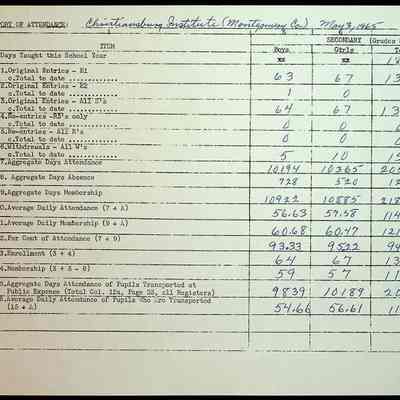 PORT OF ATTENDANCE: Christiansburg Institute (Montgomery Co) May 3, 1965
ITEM SECONDARY (Grades
Boys Girls T
Days Taught this School Year xx xx
1.Original Entries - E1
c.Total to date .............. 63 67 13
2.Original Entries - E2
c.Total to date .............. 1 0
3.Original Entries - All E's
c.Total to date .............. 64 67 13
4.Re-entries -R3's only
c.Total to date .............. 0 0 0
5.Re-entries - All R's
c.Total to date .............. 0 0
6.Withdrawals - All W's
c.Total to date .............. 5 10 15
7.Aggregate Days Attendance 10194 10365 205
8. Aggregate Days Absence 728 520 12
9.Aggregate Days Membership 10922 10885 218
0.Average Daily Attendance (7 ÷ A) 56.63 57.58 114
1.Average Daily Membership (9 ÷ A) 60.68 60.47 121
2.Per Cent of Attendance (7 ÷ 9) 93.33 95.22 94
3.Enrollment (3 + 4) 64 67 13
4.Membership (3 + 5 - 6) 59 57 11
5.Aggregate Days Attendance of Pupils Transported at
Public Expense (Total Col. 12a, Page 23, all Registers) 9839 10189 20
6.Average Daily Attendance of Pupils Who Are Transported
(15 ÷ A) 54.66 56.61 11